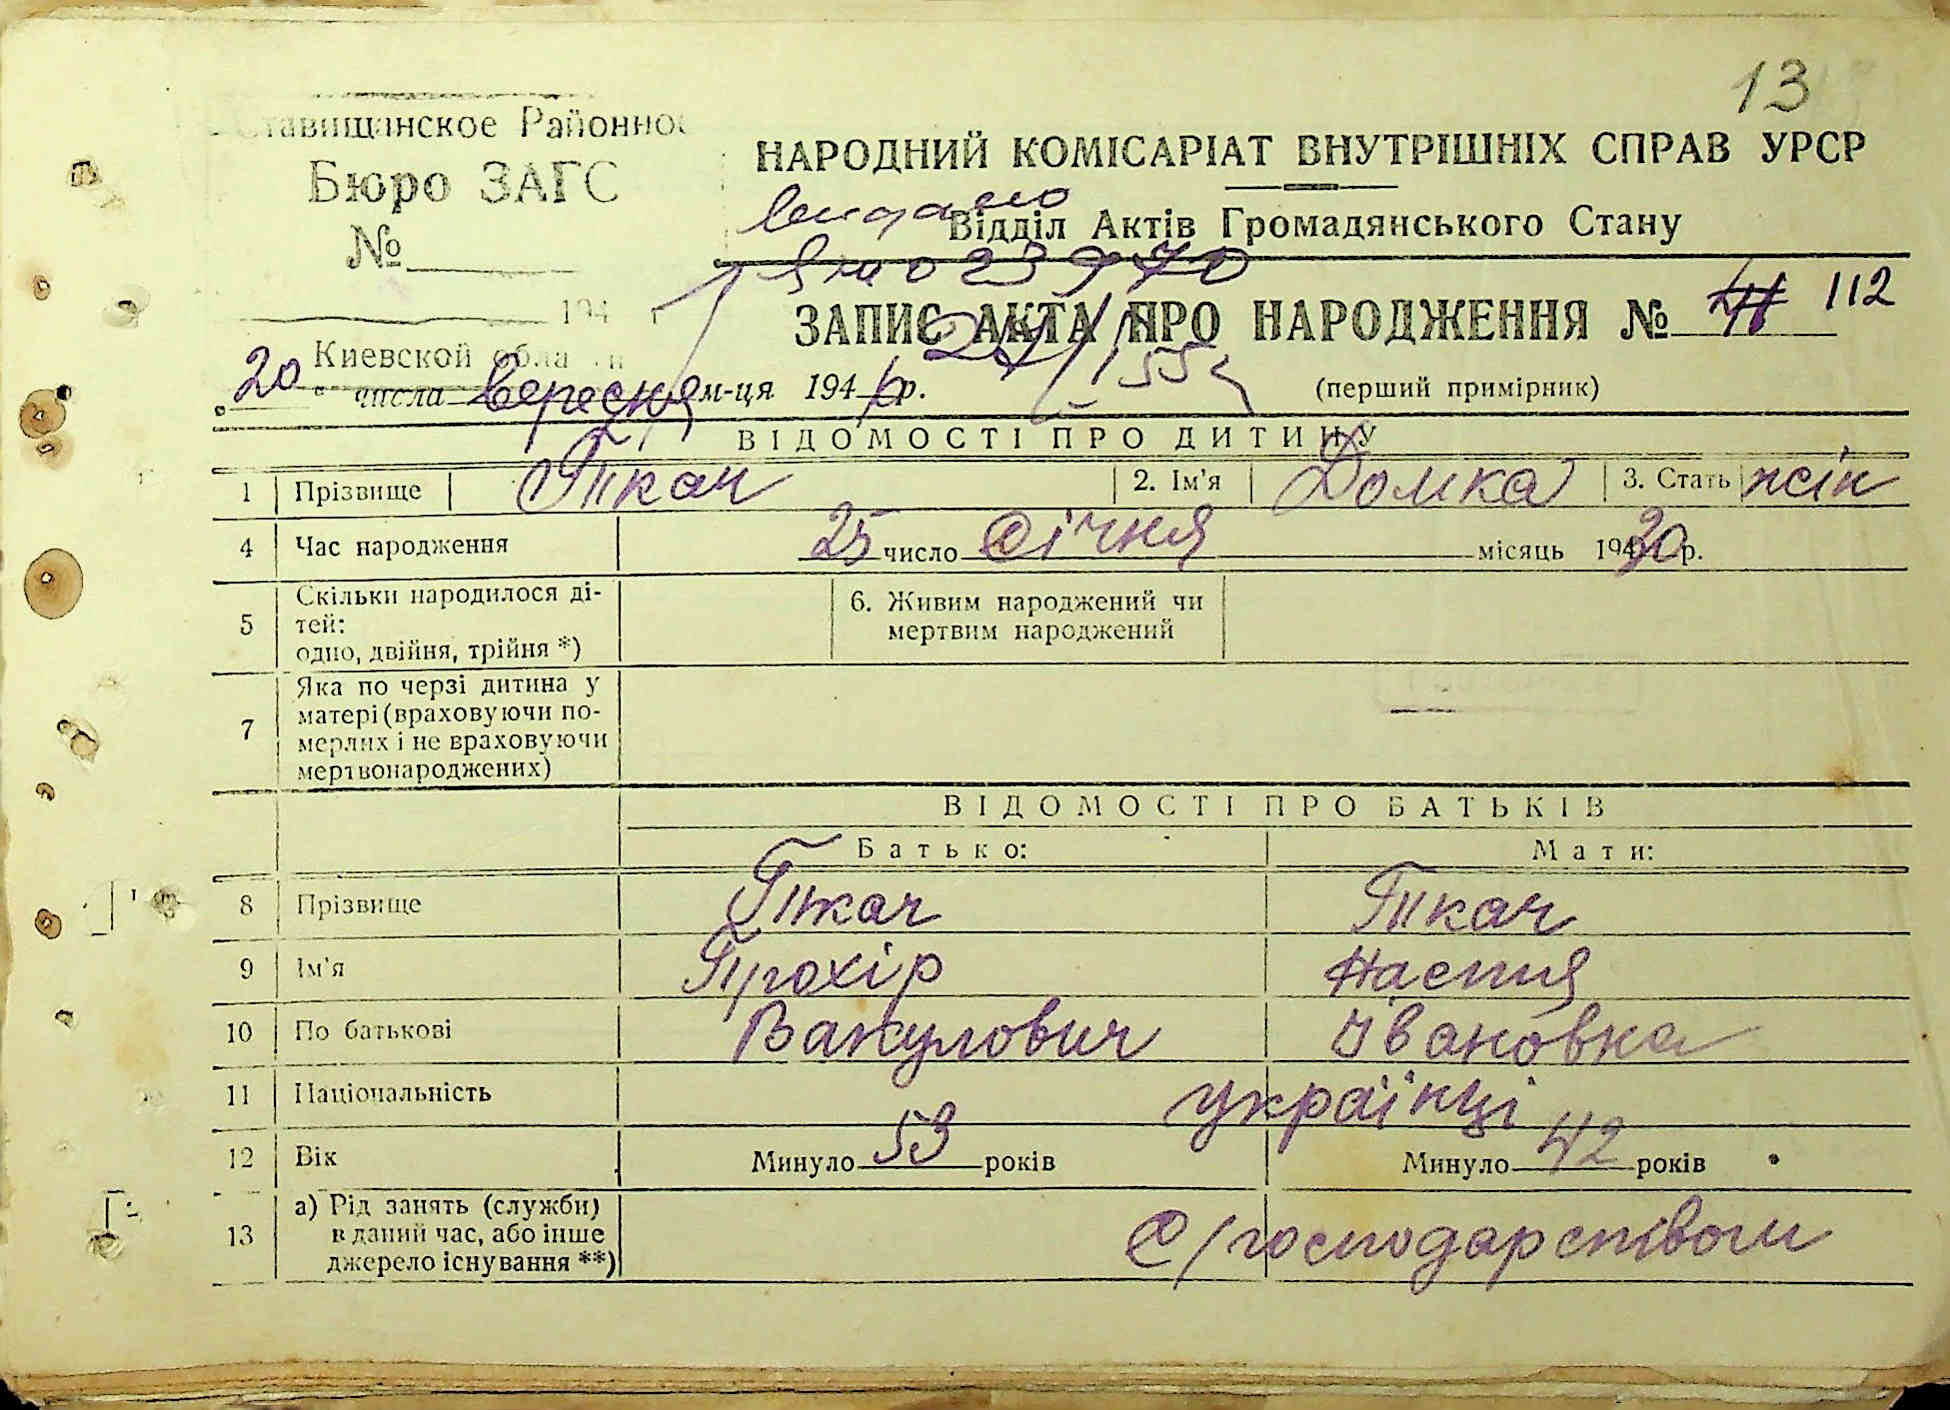 13
Ставищанское Районное
Бюро ЗАГС
№
194 г
Киевской обла
НАРОДНИЙ КОМІСАРІАТ ВНУТРІШНІХ СПРАВ УРСР
Відділ Актів Громадянського Стану
видано
023970
ЗАПИС АКТА ПРО НАРОДЖЕННЯ № 112
20 числа Вересня м-ця 1946 р.
55
(перший примірник)
ВІДОМОСТІ ПРО ДИТИНУ
1 Прізвище Ткач 2. Ім'я Домка 3. Стать жін
4 Час народження 25 число Січня місяць 1920 р.
5 Скільки народилося ді-
тей:
одно, двійня, трійня *)
6. Живим народжений чи
мертвим народжений
7 Яка по черзі дитина у
матері (враховуючи по-
мерлих і не враховуючи
мертвонароджених)
ВІДОМОСТІ ПРО БАТЬКІВ
Батько: Мати:
8 Прізвище Ткач Ткач
9 Ім'я Прохір Настя
10 По батькові Вакулович Івановна
11 Національність українці
12 Вік Минуло 53 років Минуло 42 років
13 а) Рід занять (служби)
в даний час, або інше
джерело існування **)
С/господарством